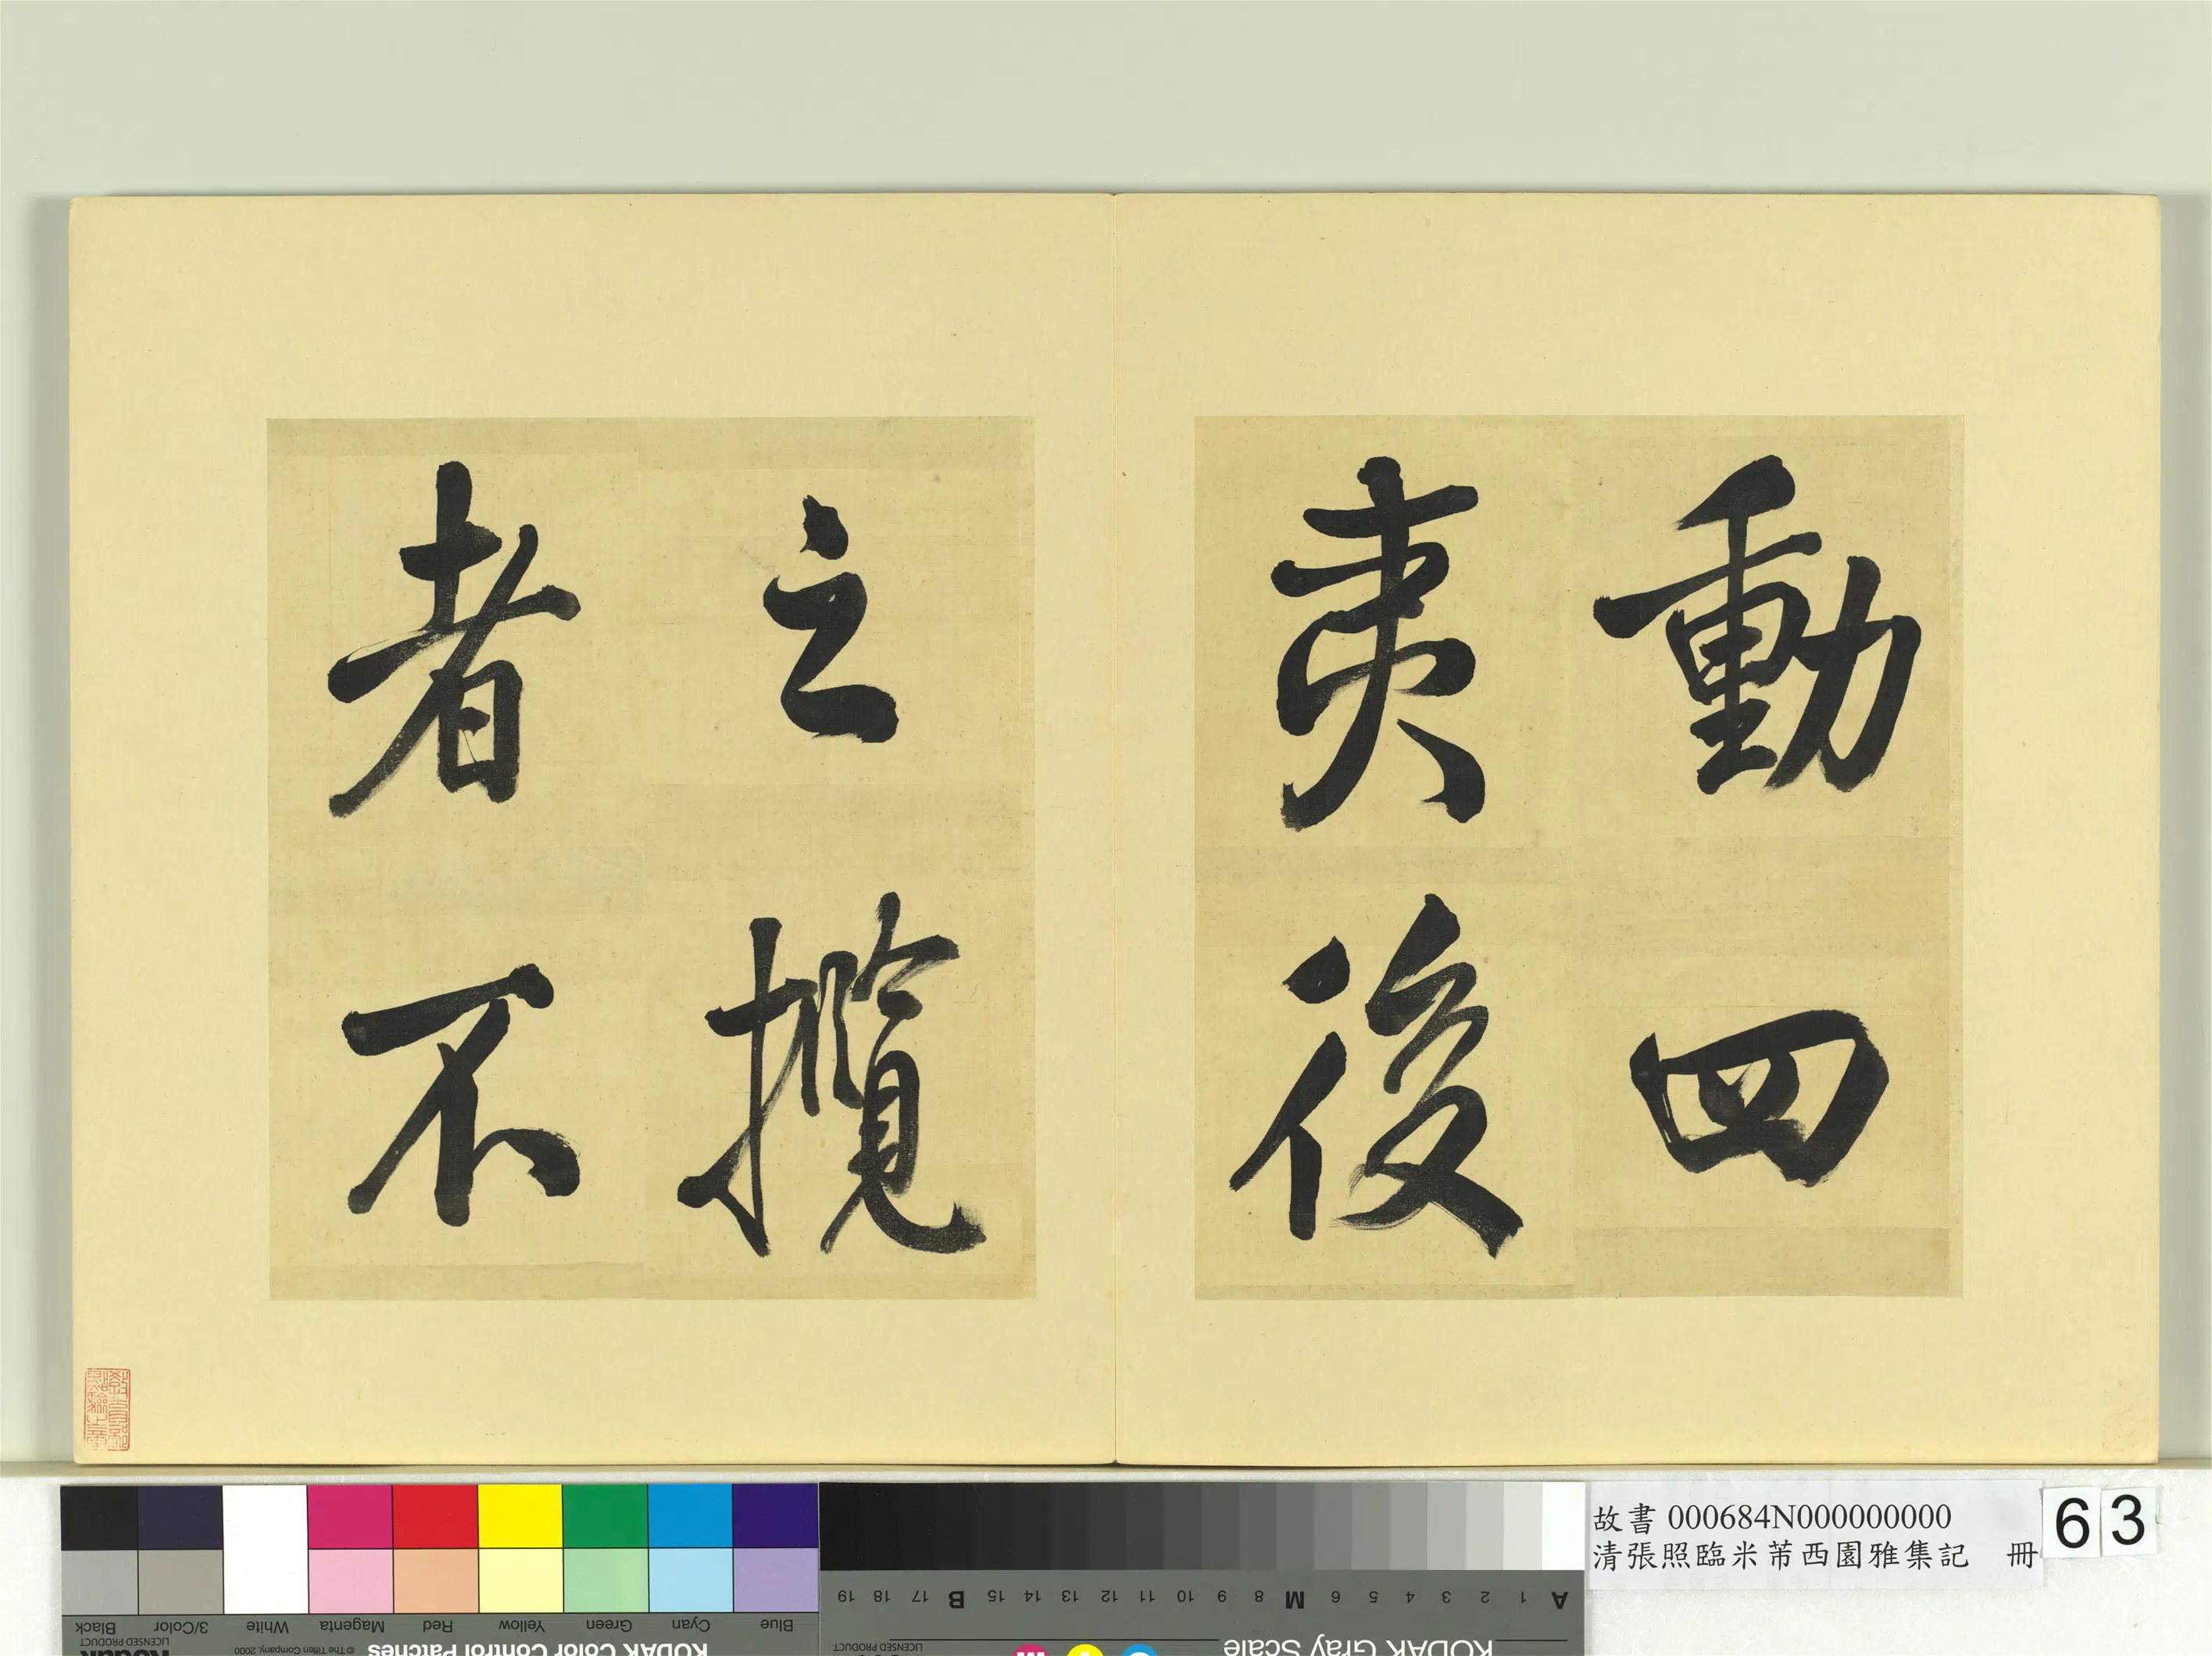 動四
夷後
之攬
者不
故書 000684N000000000
清張照臨米芾西園雅集記 冊
63
Black
3/Color
White
Magenta
Red
Yellow
Green
Cyan
Blue
KODAK Color Control Patches
© The Tiffen Company, 2000
LICENSED PRODUCT
Kodak
KODAK Gray Scale
LICENSED PRODUCT
A 1 2 3 4 5 6 M 8 9 10 11 12 13 14 15 B 17 18 19